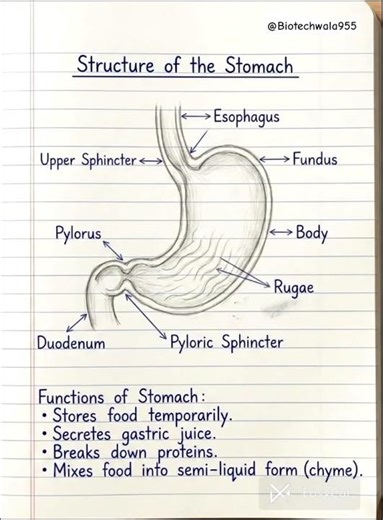 @Biotechwala955
Structure of the Stomach
Esophagus
Upper Sphincter
Fundus
Pylorus
Body
Rugae
Duodenum
Pyloric Sphincter
Functions of Stomach:
• Stores food temporarily.
• Secretes gastric juice.
• Breaks down proteins.
• Mixes food into semi-liquid form (chyme).